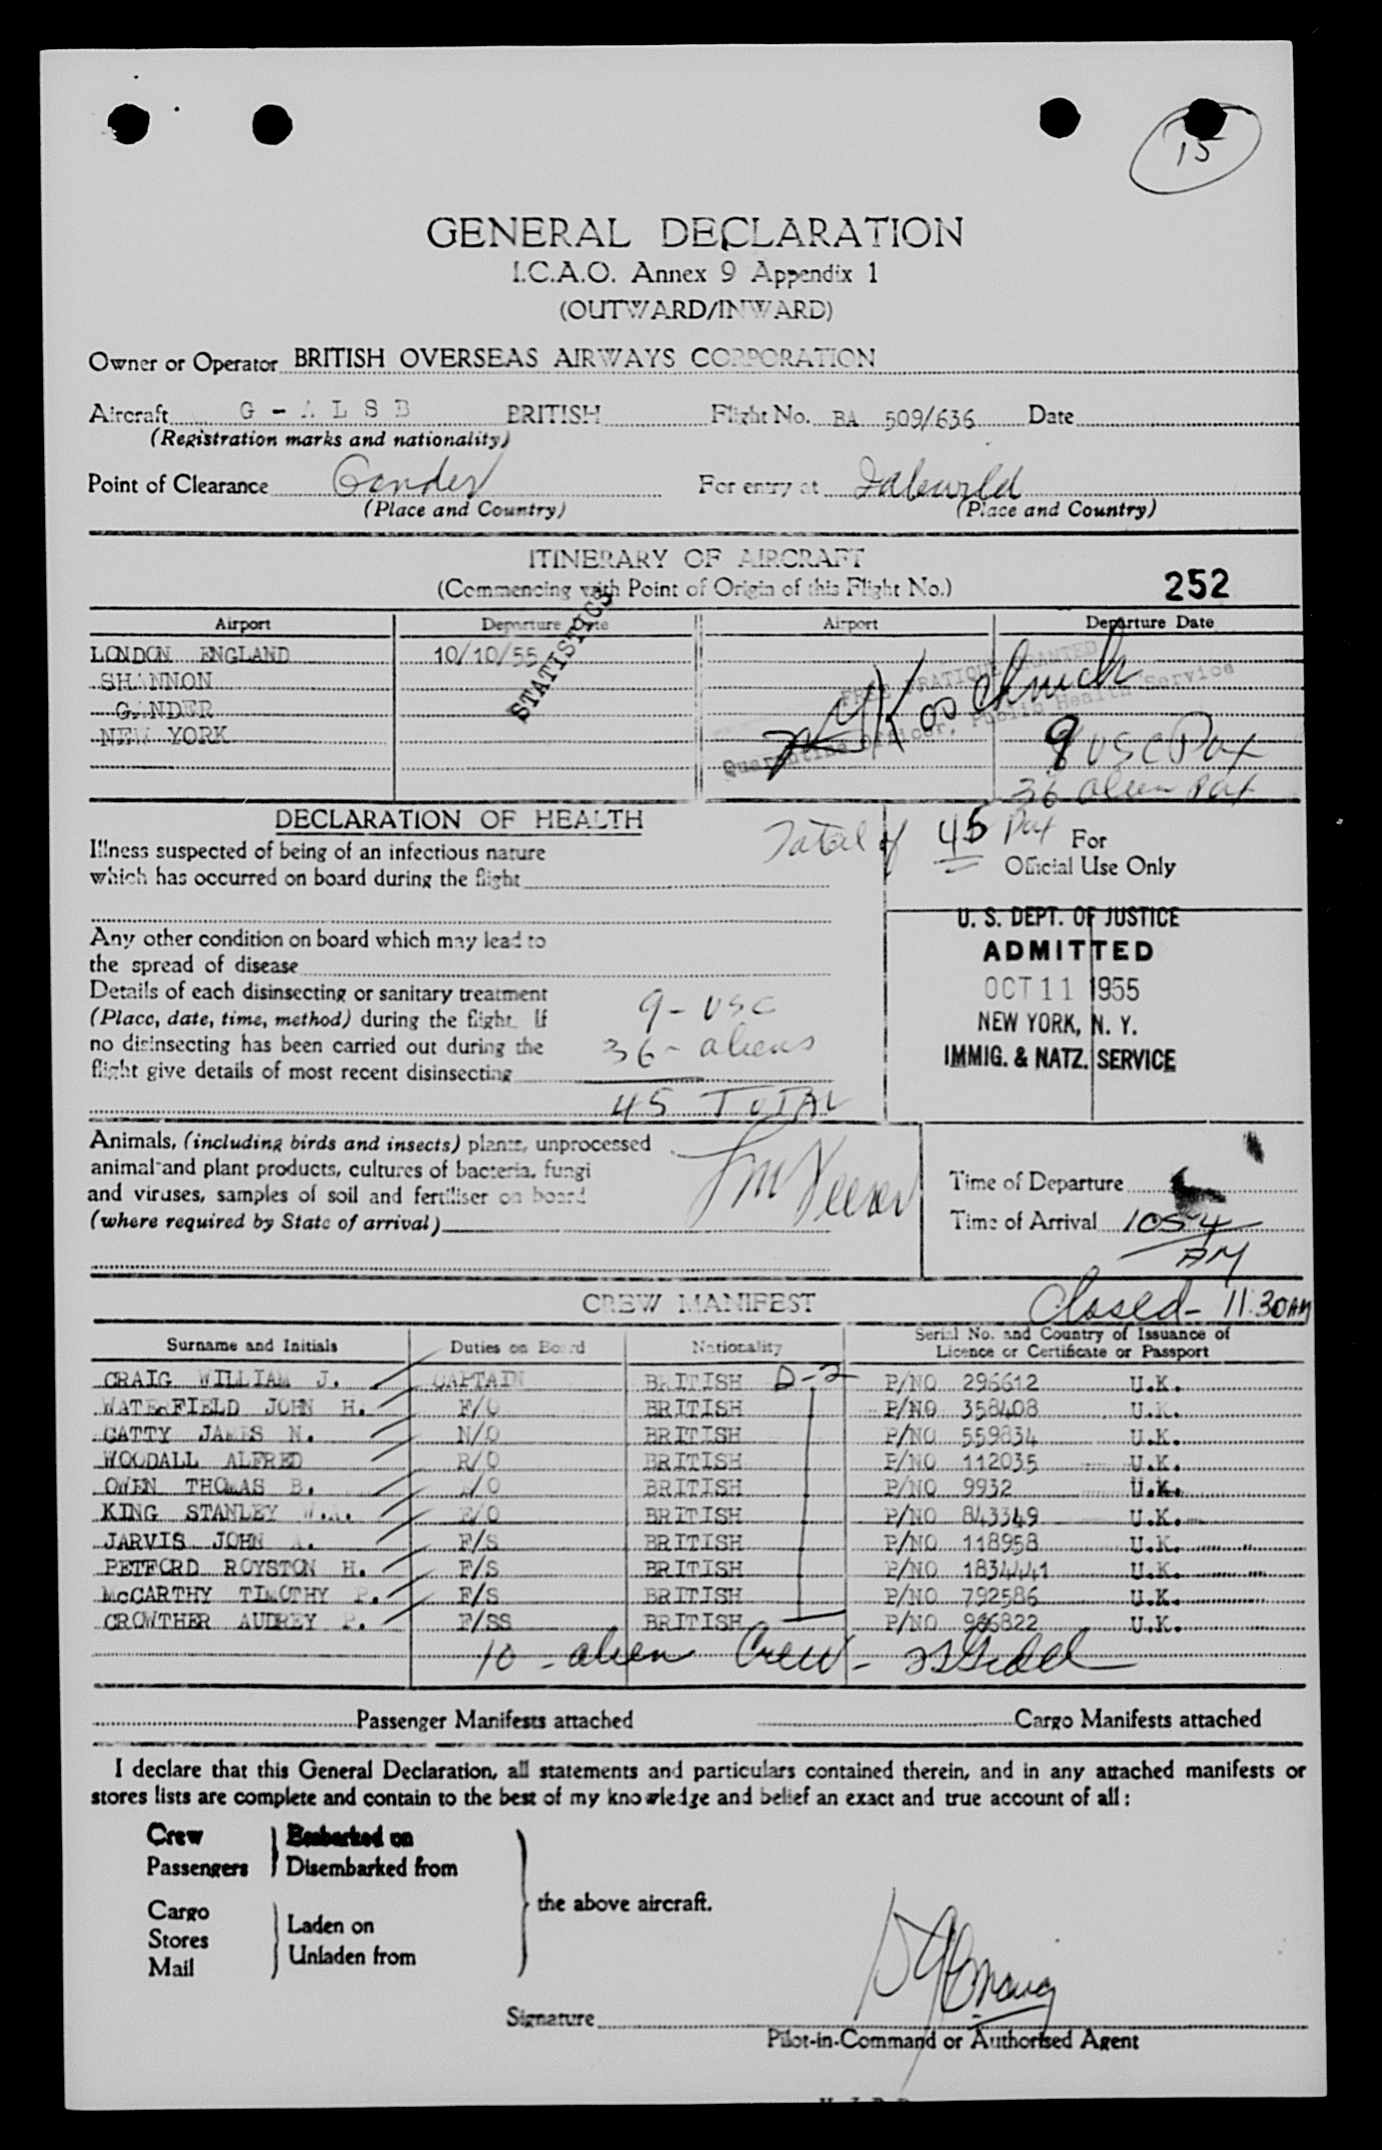 15
GENERAL DECLARATION
I.C.A.O. Annex 9 Appendix 1
(OUTWARD/INWARD)
Owner or Operator BRITISH OVERSEAS AIRWAYS CORPORATION
Aircraft G - A L S B BRITISH Flight No. BA 509/636 Date
(Registration marks and nationality)
Point of Clearance Gander For entry at Idlewild
(Place and Country) (Place and Country)
ITINERARY OF AIRCRAFT
(Commencing with Point of Origin of this Flight No.)
252
Airport Departure Date Airport Departure Date
LONDON ENGLAND 10/10/55
SHANNON
GANDER
NEW YORK
STATISTICS
FREE PRATIQUE GRANTED
Quarantine Officer, Public Health Service
9 USC Pax
36 alien Pax
Total of 45 Pax
DECLARATION OF HEALTH
For
Official Use Only
Illness suspected of being of an infectious nature
which has occurred on board during the flight
Any other condition on board which may lead to
the spread of disease
Details of each disinsecting or sanitary treatment
(Place, date, time, method) during the flight. If
no disinsecting has been carried out during the
flight give details of most recent disinsecting
9 - USC
36 - aliens
45 TOTAL
U. S. DEPT. OF JUSTICE
ADMITTED
OCT 11 1955
NEW YORK, N. Y.
IMMIG. & NATZ. SERVICE
Animals, (including birds and insects) plants, unprocessed
animal and plant products, cultures of bacteria, fungi
and viruses, samples of soil and fertiliser on board
(where required by State of arrival)
Time of Departure
Time of Arrival 1054
AM
Closed - 11.30 AM
CREW MANIFEST
Surname and Initials Duties on Board Nationality Serial No. and Country of Issuance of
Licence or Certificate or Passport
CRAIG WILLIAM J. CAPTAIN BRITISH D-2 P/NO 296612 U.K.
WATERFIELD JOHN H. F/O BRITISH P/NO 358408 U.K.
GATTY JAMES N. N/O BRITISH P/NO 559834 U.K.
WOODALL ALFRED R/O BRITISH P/NO 112035 U.K.
OWEN THOMAS B. /O BRITISH P/NO 9932 U.K.
KING STANLEY W.A. E/O BRITISH P/NO 843349 U.K.
JARVIS JOHN A. F/S BRITISH P/NO 118958 U.K.
PETFORD ROYSTON H. F/S BRITISH P/NO 1834441 U.K.
McCARTHY TIMOTHY P. F/S BRITISH P/NO 792586 U.K.
CROWTHER AUDREY P. F/SS BRITISH P/NO 966822 U.K.
10 - alien Crew -
Passenger Manifests attached Cargo Manifests attached
I declare that this General Declaration, all statements and particulars contained therein, and in any attached manifests or
stores lists are complete and contain to the best of my knowledge and belief an exact and true account of all:
Crew Embarked on
Passengers Disembarked from
the above aircraft.
Cargo
Laden on
Stores
Unladen from
Mail
Signature
Pilot-in-Command or Authorised Agent